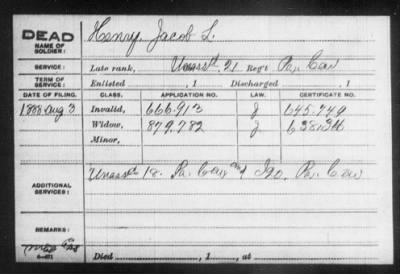 DEAD
NAME OF SOLDIER: Henry, Jacob L.
SERVICE: Late rank, Unassd. 21 Reg't Pa. Cav
TERM OF SERVICE: Enlisted , 1 Discharged , 1
DATE OF FILING. CLASS. APPLICATION NO. LAW. CERTIFICATE NO.
1888 Aug 3 Invalid, 666.913 J 645.749
Widow, 879,782 J
Minor,
ADDITIONAL SERVICES: Unassd 18. Pa. Cav and Pa. Cav
REMARKS:
Died , 1 , at